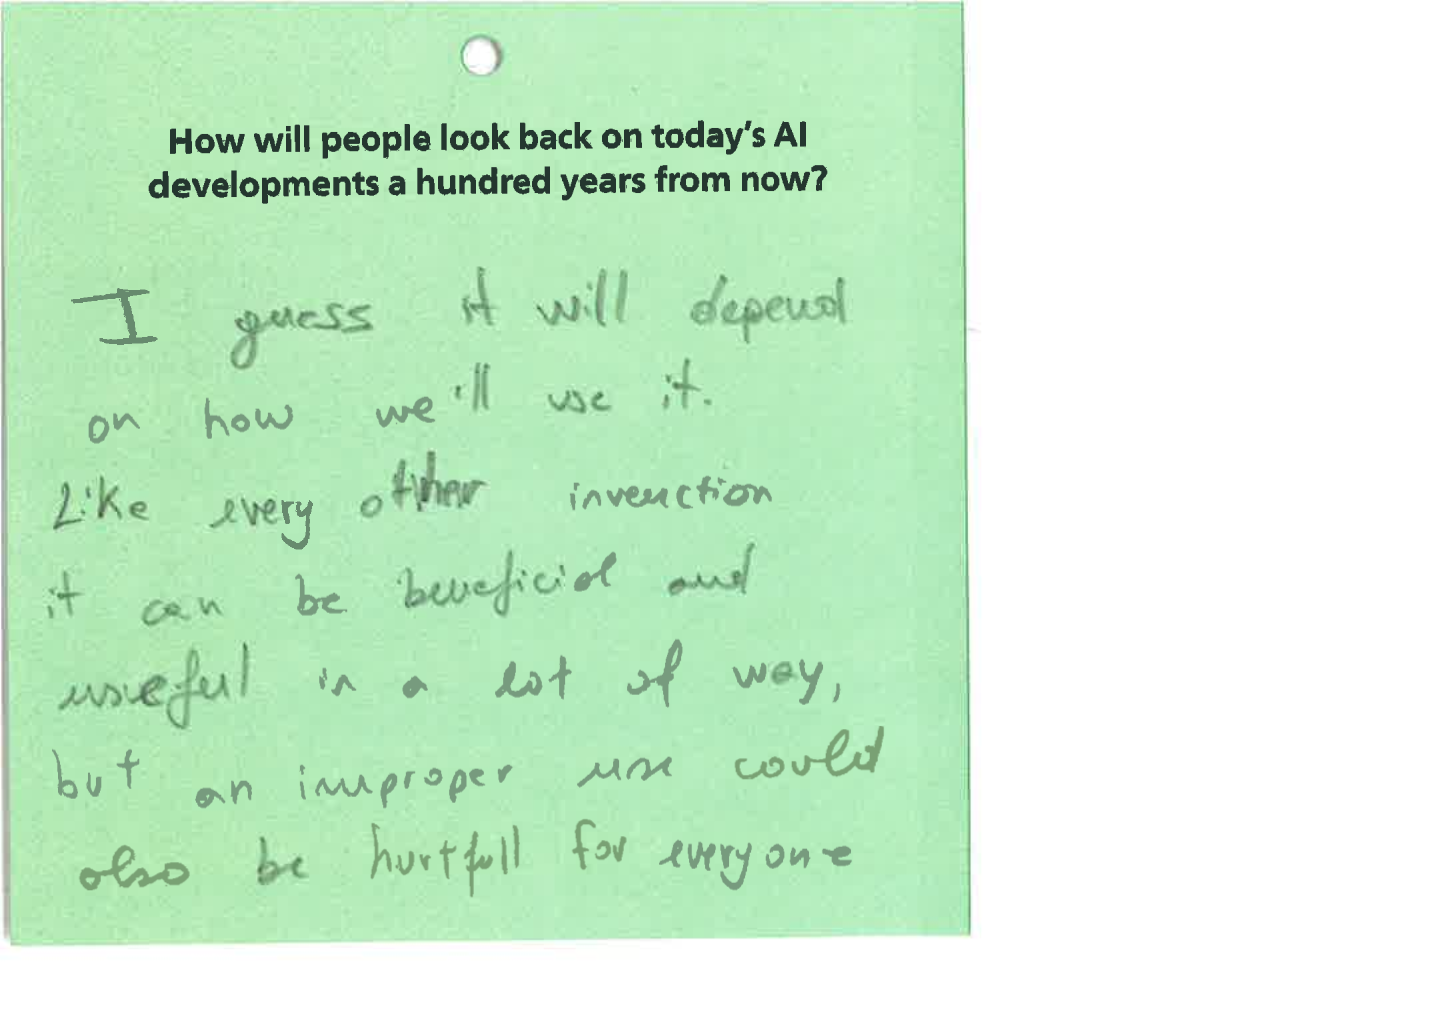 How will people look back on today's AI
developments a hundred years from now?
I guess it will depend
on how we'll use it.
Like every other invenction
it can be beneficial and
useful in a lot of way,
but an improper use could
also be hurtfull for everyone